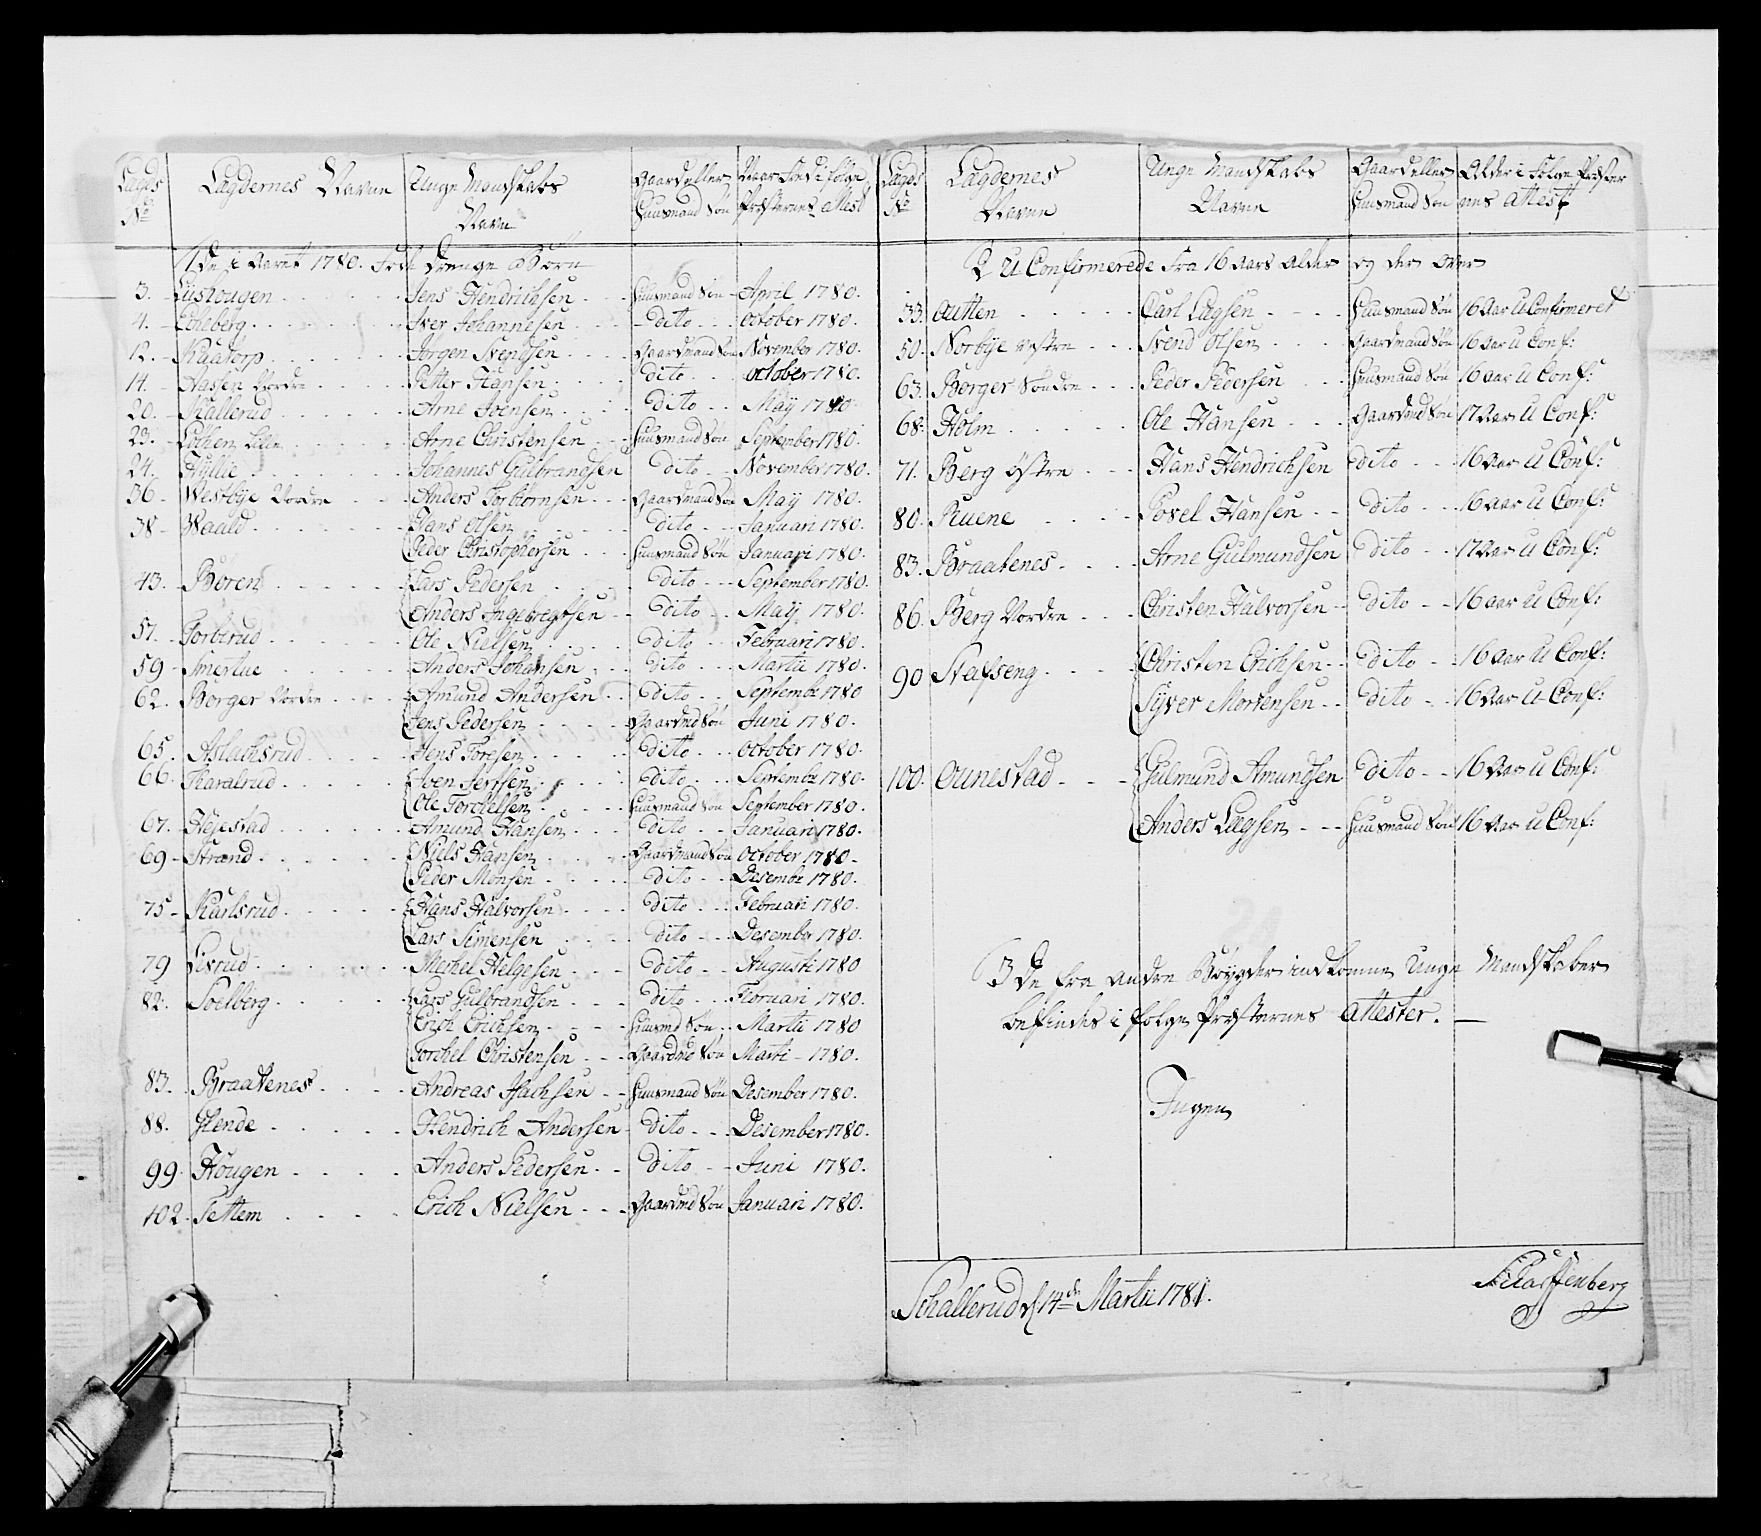 Lægds No Lægdernes Navne Unge Mandskabs Navne Gaard eller Huusmand Søn Naar Fød i følge Præsternes Attest
1 De i Aaret 1780. Fødte Drenge Børn
3. Lusvougen Jens Hendrichsen Huusmand Søn April 1780.
4. Edleberg Iver Johannesen dito October 1780.
12. Kaatorp Jørgen Svendsen Gaardmand Søn November 1780.
14. Aasen Nordre Petter Hansen dito october 1780.
20. Skallerud Arne Joensen dito Maÿ 1780.
23. Lökken Lille Arne Christensen Huusmand Søn September 1780.
24. Hyllie Johannes Gulbrandsen dito November 1780.
36. Westbÿe Nordre Anders Torbiörnsen Gaardmand Søn Maÿ 1780.
38. Waald Hans Olsen dito Januari 1780.
Peder Christophersen Huusmand Søn Januari 1780.
43. Boren Lars Pedersen dito September 1780.
Anders Ingebregtsen dito Maÿ 1780.
57. Torbirud Ole Nielsen dito Februari 1780.
59 Smertue Anders Johansen dito Martii 1780.
62. Borger Nordre Amund Andersen dito Septembr 1780
Jens Pedersen Gaardmd Søn Juni 1780.
65. Aslachsrud Jens Toresen dito October 1780.
66. Haralrud Sven Jerssen dito Septembr 1780.
Ole Torchelsen Huusmand Søn September 1780.
67. Höjestad Amund Hansen dito Januari 1780.
69 Strand Niels Hansen Gaardmand Søn October 1780
Peder Monsen dito Desembr 1780.
75 Karlsrud Hans Halvorsen dito Februari 1780.
Lars Simensen dito Desember 1780.
79 Lisrud Mechel Helgesen dito Augusti 1780
82. Soelberg Lars Gulbrandsen dito Februari 1780.
Erich Erichsen Huusmd Søn Martii 1780
Torchel Christensen Gaardmd Søn Marti 1780.
83. Braatenes Andreas Isachsen Huusmand Søn Desember 1780.
88. Hende Hendrich Andersen dito Desember 1780.
99. Hougen Anders Pedersen dito Juni 1780.
102. Settem Erich Nielsen Gaardmd Søn Januari 1780.
Lægds No Lægdernes Navne Unge Mandskabs Navne Gaard eller Huusmand Søn Alder i Følge Præsternes Attest
2 U Confirmerede fra 16 Aars Alder og der over
33. Autten Carl Lægsen Huusmand Søn 16 Aar U Confirmeret
50. Norbÿe vestre Svend Olsen Gaardmand Søn 16 Aar U Conf:
63. Borger Söndre Peder Pedersen Huusmand Søn 16 Aar U Conf:
68. Holm Ole Hansen Gaardmd Søn 17 Aar U Conf:
71. Berg östre Hans Hendrichsen dito 16 Aar U Conf:
80. Ruene Povel Hansen dito 16 Aar U Conf:
83. Braatenes Arne Gulmundsen dito 17 Aar U Conf:
86. Berg Nordre Christen Halvorsen dito 16 Aar U Conf:
90 Stafseng Christen Erichsen dito 16 Aar U Conf:
Syver Mortensen dito 16 Aar U Conf:
100. Ounestad Gulmund Amundsen dito 16 Aar U Conf:
Anders Lægsen Huusmand Søn 16 Aar U Conf:
3 De fra andre Bøygder indkomne Unge Mandskaber
befindes i følge Præsternes Attester.
Ingen
Schallerud d 14de Martii 1781.
Scharffenberg